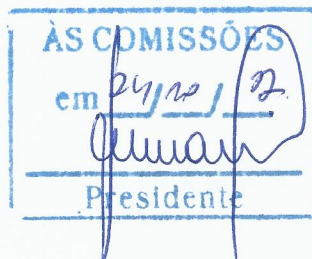 ÀS COMISSÕES
em 24/10/
Presidente